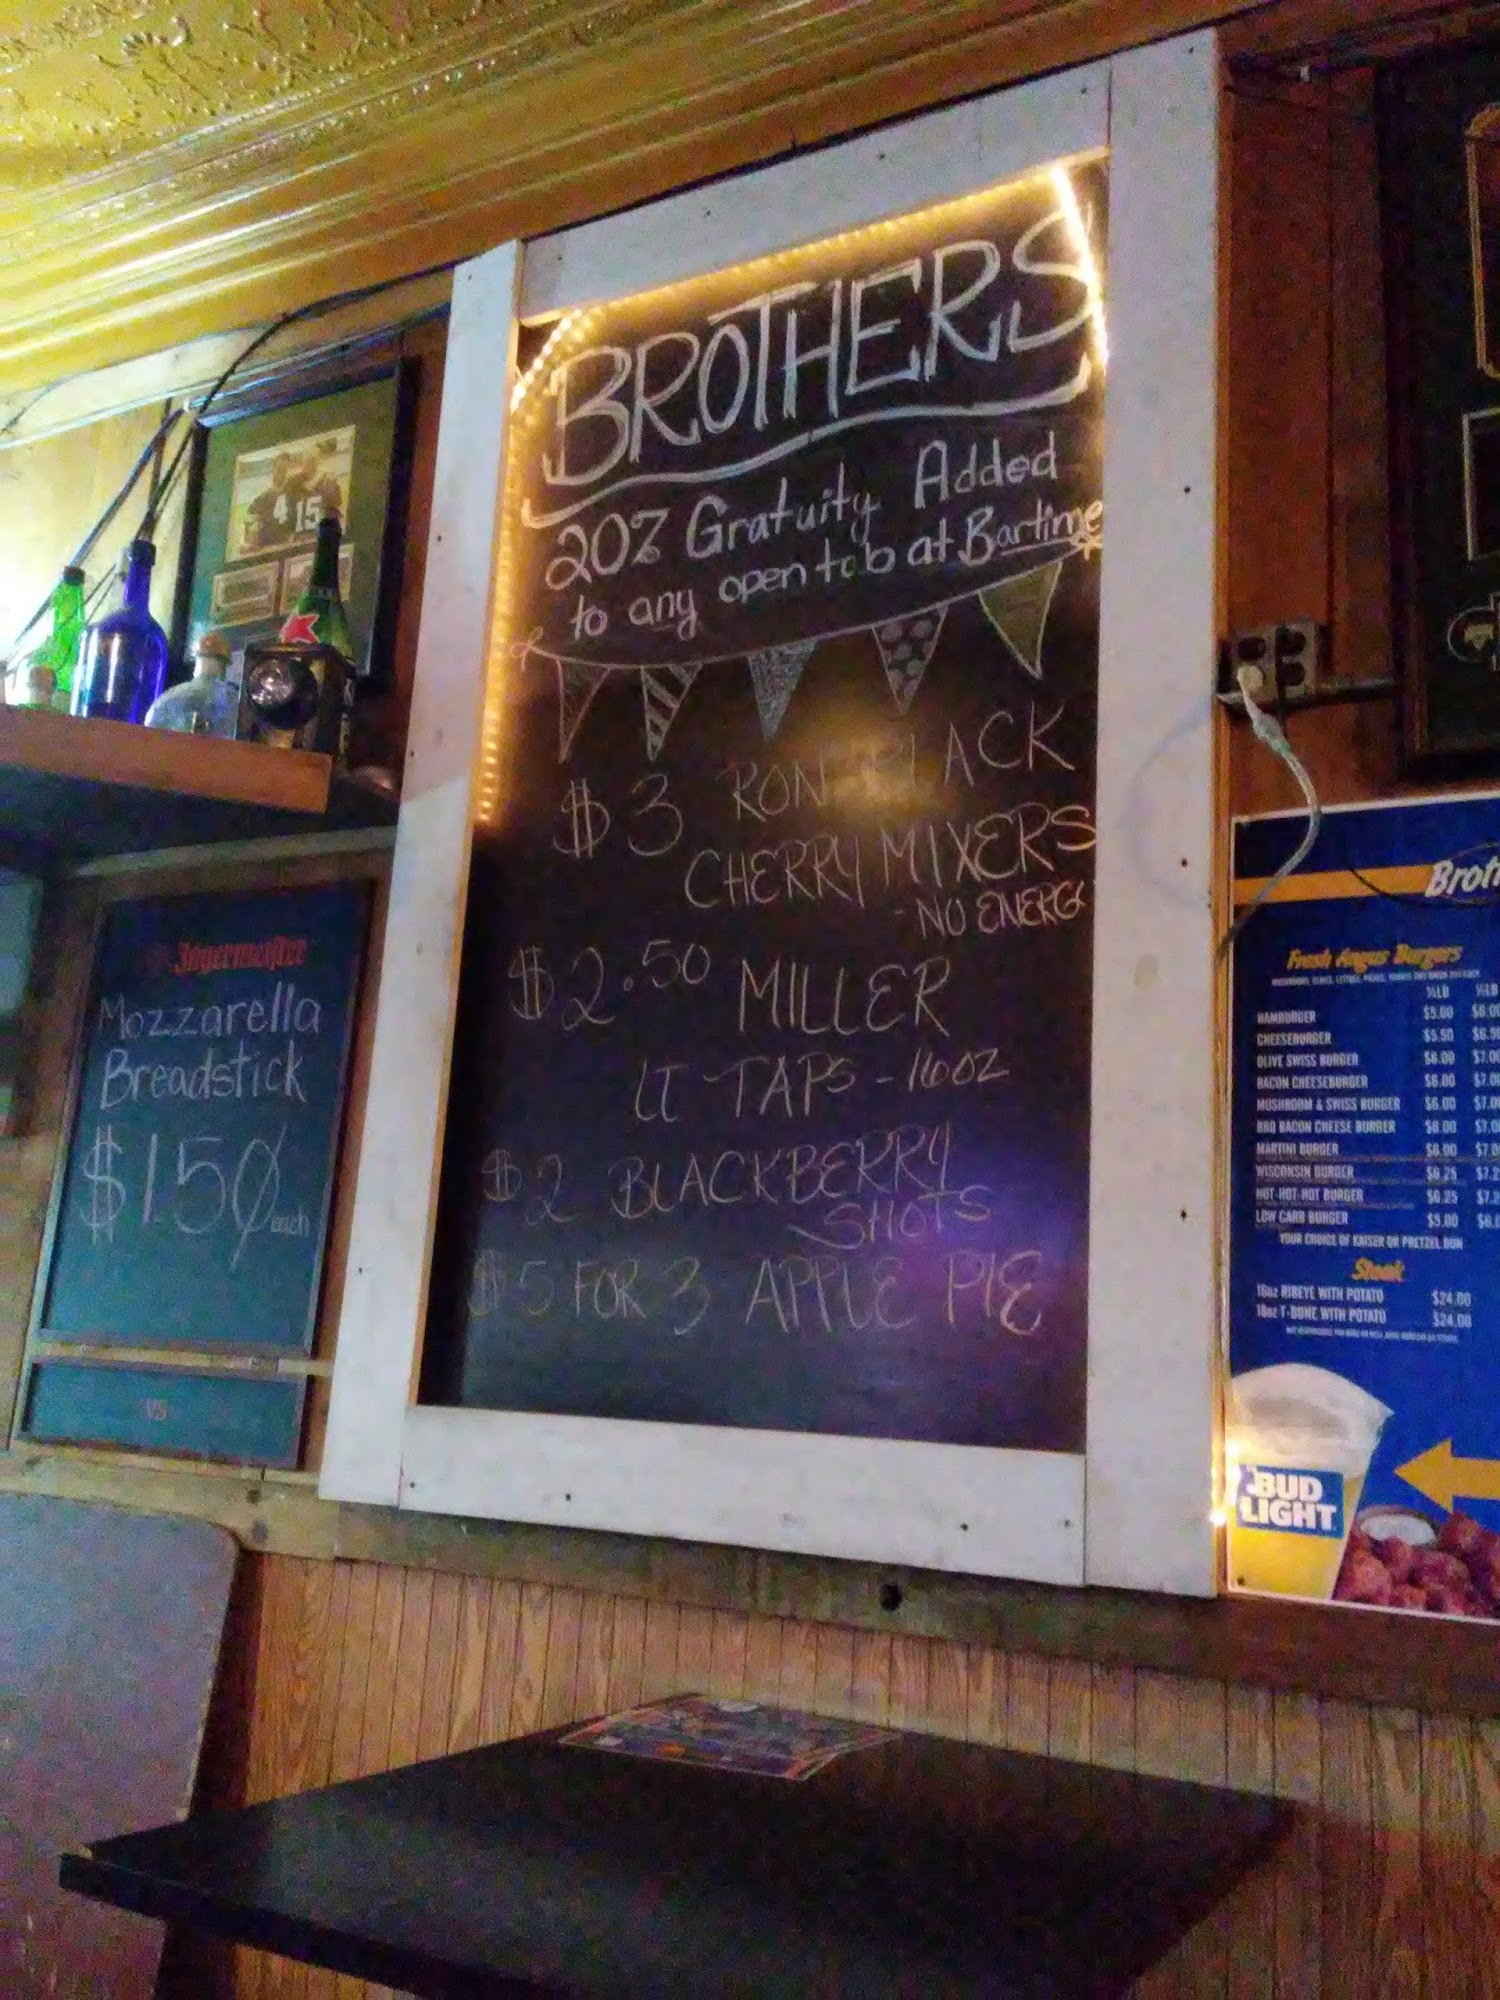 BROTHERS
20% Gratuity Added
to any open tab at Bartime
$3 RON BLACK
CHERRY MIXERS
- NO ENERGY
$2.50 MILLER
LT TAPS - 16OZ
$2 BLACKBERRY
SHOTS
$5 FOR 3 APPLE PIE
4 15
Jägermeister
Mozzarella
Breadstick
$1.50 each
Broth
Fresh Angus Burgers
⅓LB ½LB
HAMBURGER $5.00 $6.00
CHEESEBURGER $5.50 $6.50
OLIVE SWISS BURGER $6.00 $7.00
BACON CHEESEBURGER $6.00 $7.0
MUSHROOM & SWISS BURGER $6.00 $7.0
BBQ BACON CHEESE BURGER $6.00 $7.0
MARTINI BURGER $6.00 $7.0
WISCONSIN BURGER $6.25 $7.2
HOT-HOT-HOT BURGER $6.25 $7.2
LOW CARB BURGER $5.00 $6.0
YOUR CHOICE OF KAISER OR PRETZEL BUN
Steak
16oz RIBEYE WITH POTATO $24.00
18oz T-BONE WITH POTATO $24.00
BUD
LIGHT